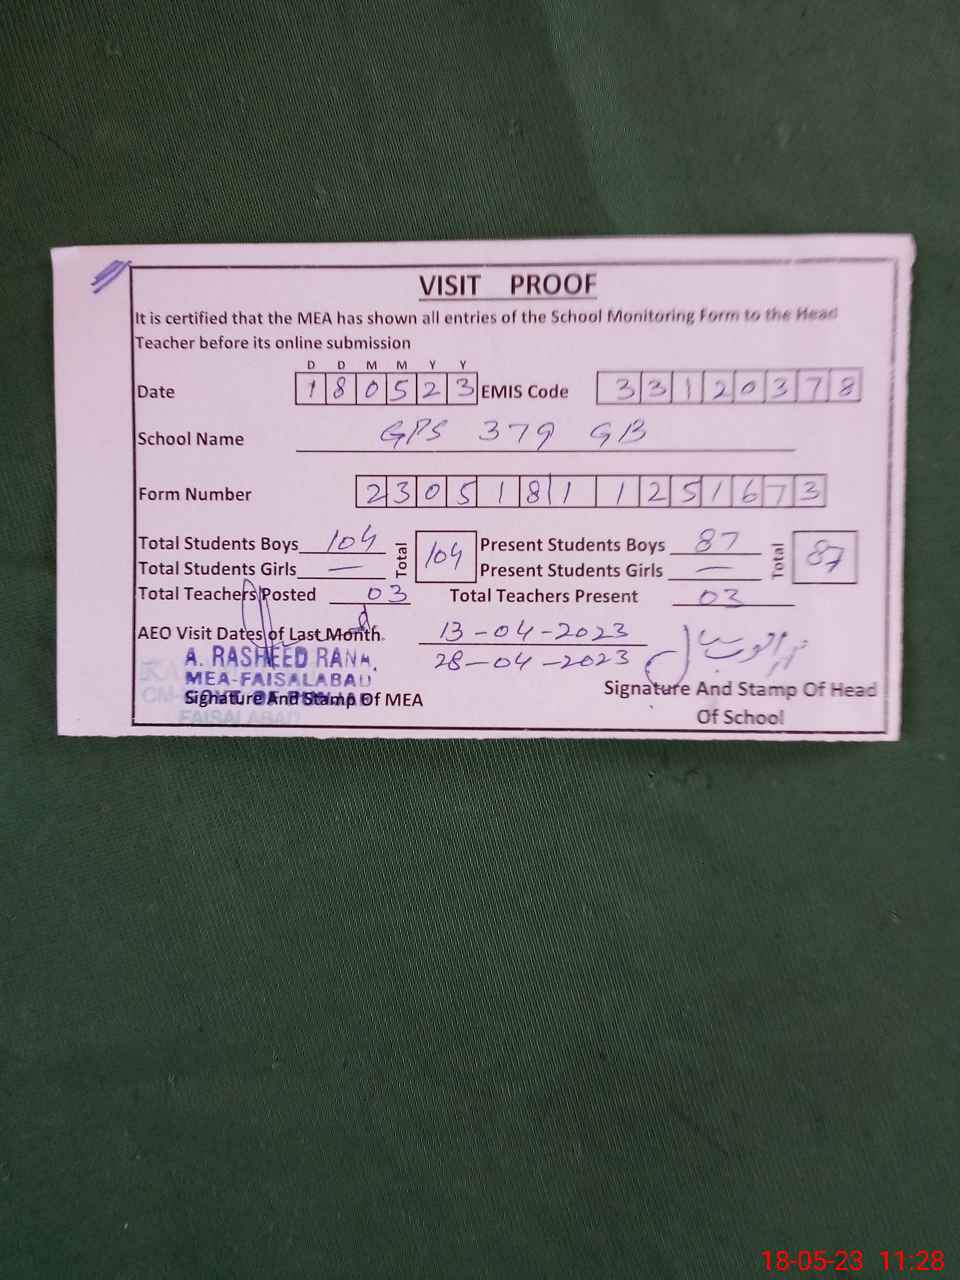 VISIT PROOF
It is certified that the MEA has shown all entries of the School Monitoring Form to the Head
Teacher before its online submission
D D M M Y Y
Date 1 8 0 5 2 3 EMIS Code 3 3 1 2 0 3 7 8
School Name GPS 379 GB
Form Number 2 3 0 5 1 8 1 1 2 5 1 6 7 3
Total Students Boys 104 Total 104 Present Students Boys 87 Total 87
Total Students Girls — Present Students Girls —
Total Teachers Posted 03 Total Teachers Present 03
AEO Visit Dates of Last Month. 13-04-2023
28-04-2023
A. RASHEED RANA,
MEA-FAISALABAD
Signature And Stamp Of MEA
FAISALABAD
Signature And Stamp Of Head
Of School
18-05-23 11:28